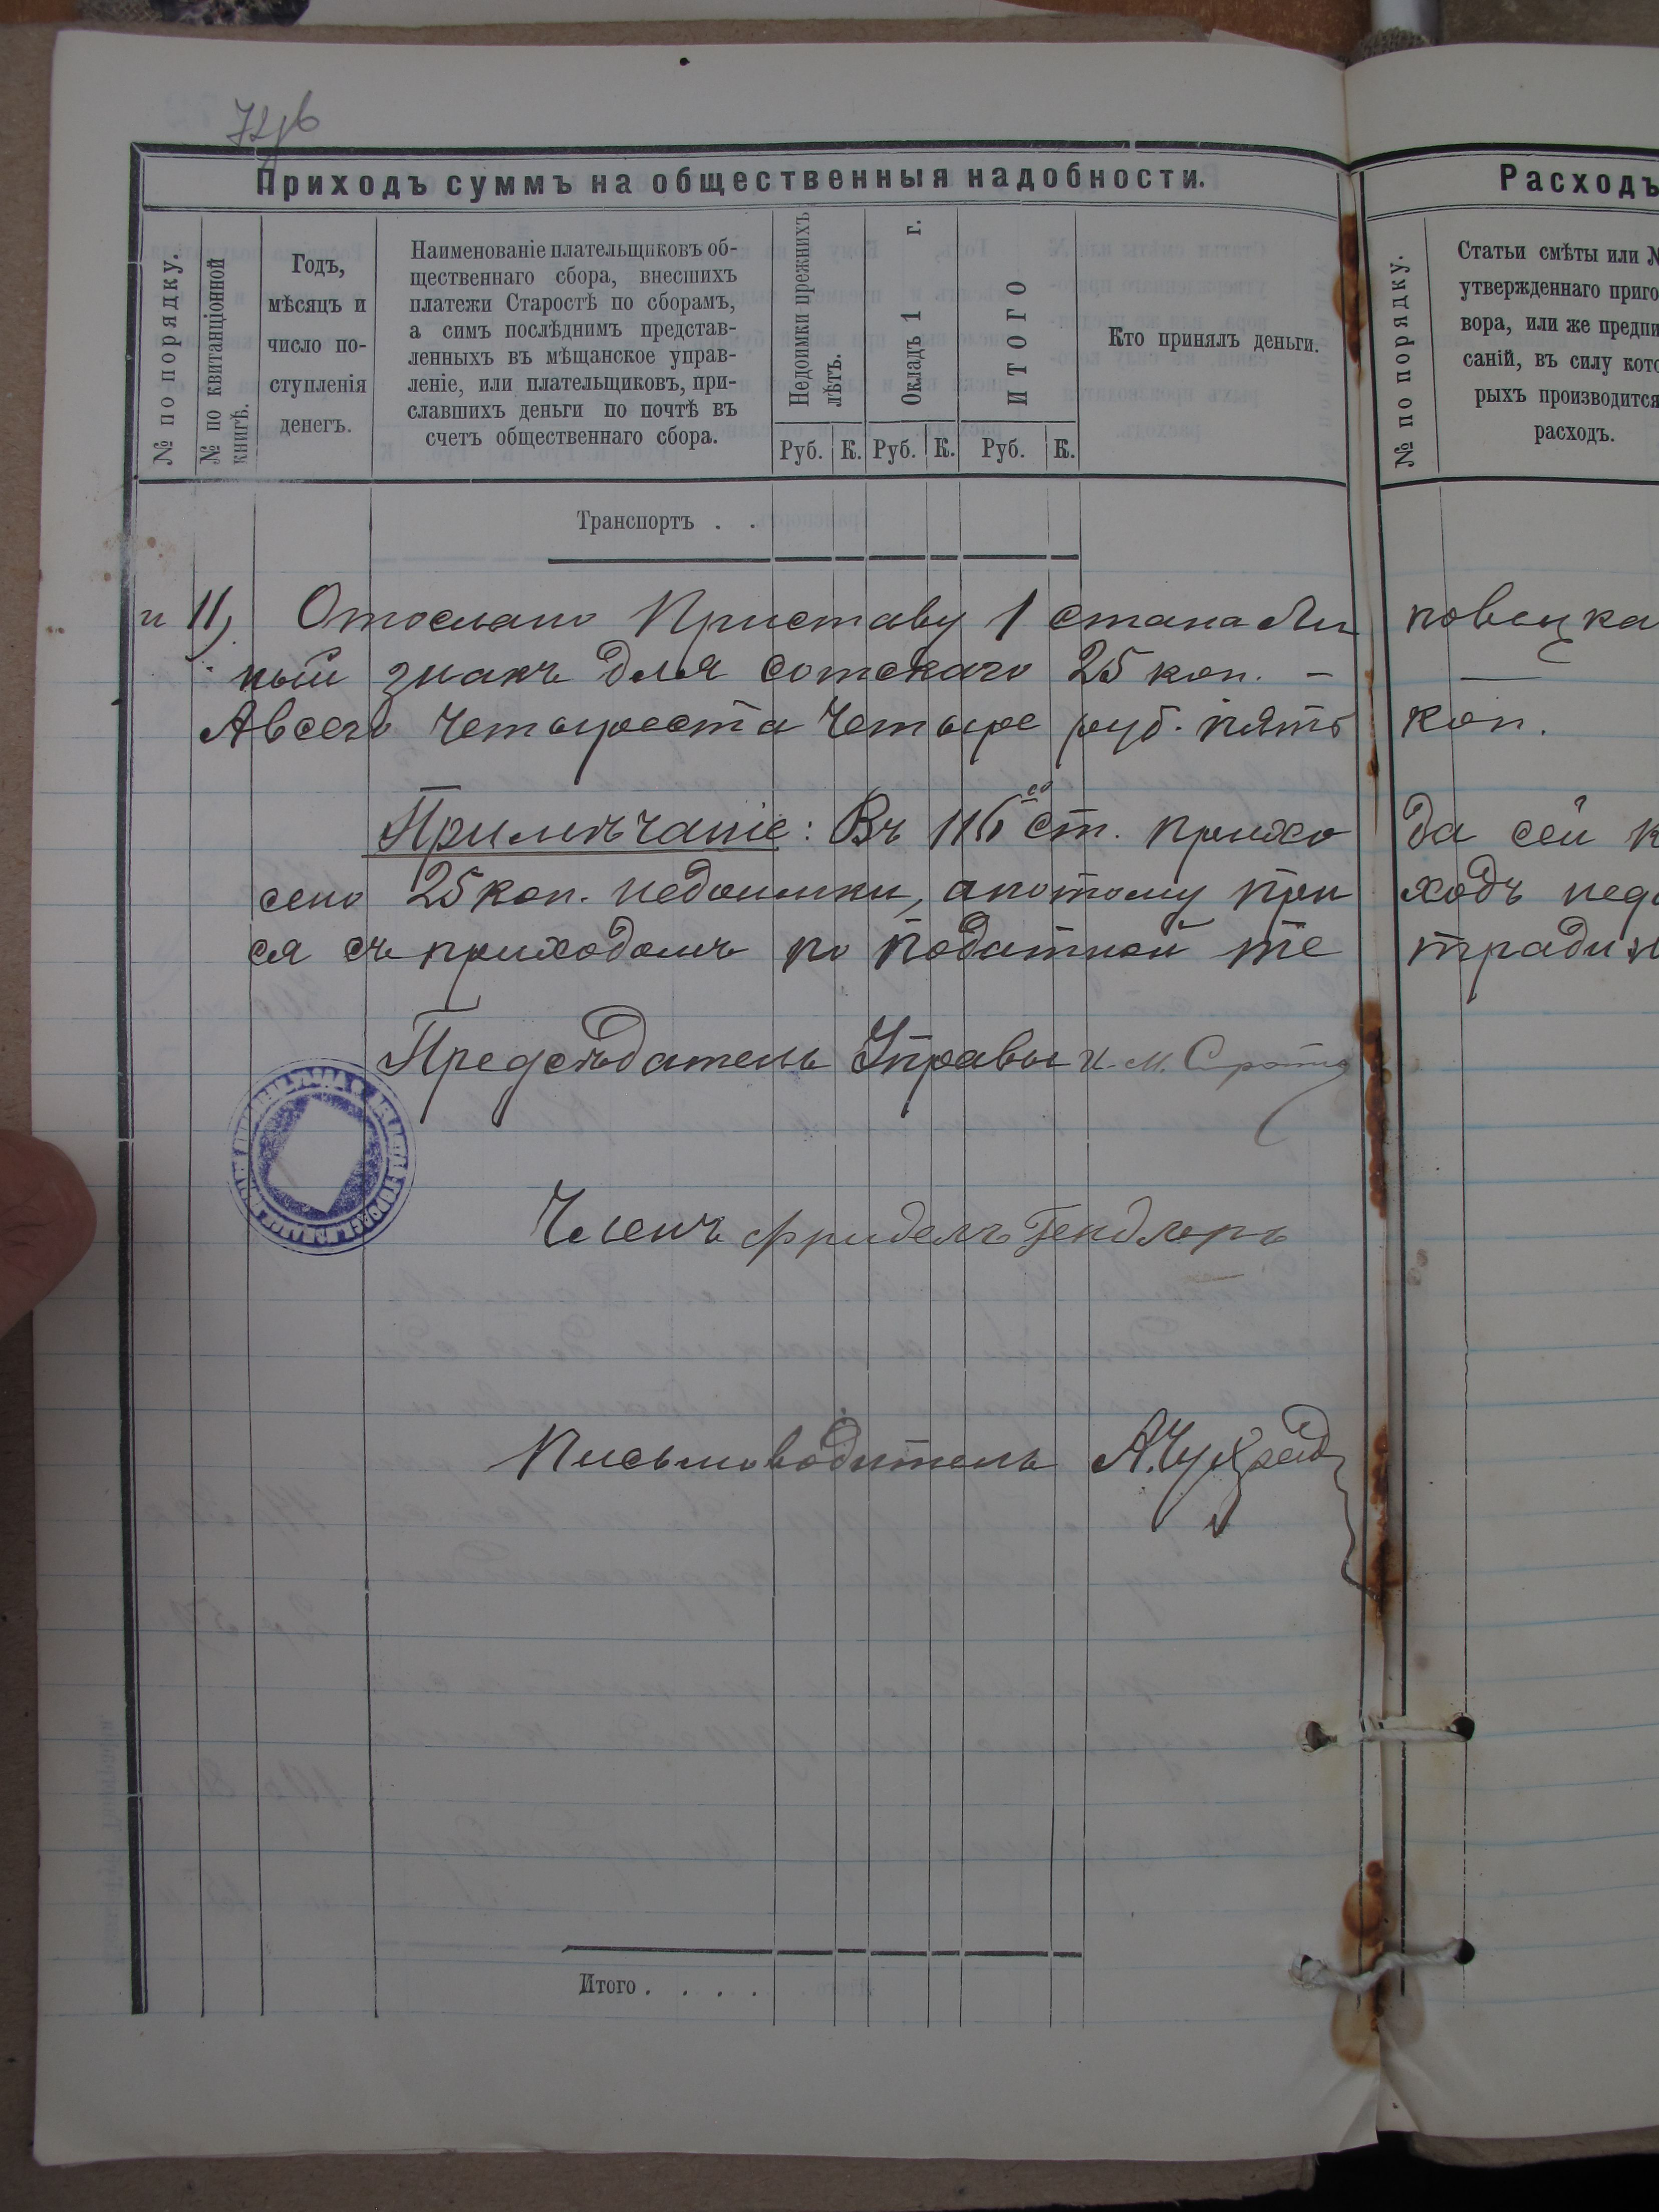 Приходъ суммъ на общественныя надобности.
№ по порядку.
№ по квитанціонной
книгѣ.
Годъ,
мѣсяцъ и
число по-
ступленія
денегъ.
Наименованіе плательщиковъ об-
щественнаго сбора, внесшихъ
платежи Старостѣ по сборамъ,
а симъ послѣднимъ представ-
ленныхъ въ мѣщанское управ-
леніе, или плательщиковъ, при-
славшихъ деньги по почтѣ въ
счетъ общественнаго сбора.
Недоимки прежнихъ
лѣтъ.
Окладъ 1 г.
ИТОГО
Руб. К. Руб. К. Руб. К.
Кто принялъ деньги.
Расходъ
№ по порядку.
Статьи смѣты или №
утвержденнаго приго
вора, или же предпи
саній, въ силу кото
рыхъ производится
расходъ.
Транспортъ . .
и 11) Отослано Приставу 1 стана Ли повецка
ный знакъ для сотскаго 25 коп. — —
А всего четыреста четыре руб. пять коп.
Примѣчаніе: Въ ст. прихо да сей к
сено 25 коп. недоимки, а потому при ходъ недо
ся съ приходомъ по податной те тради
Предсѣдатель Управы И. М. Сирота
Членъ Фридель Гендлеръ
Письмоводитель А.
Итого . . . .